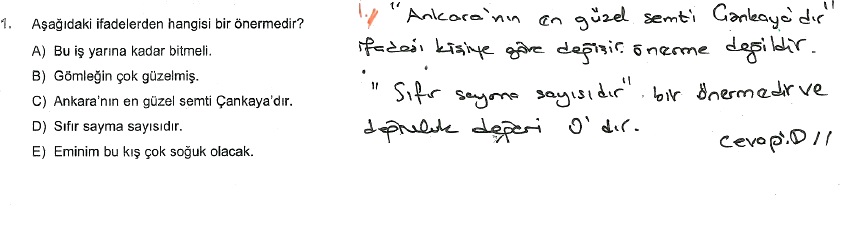 1. Aşağıdaki ifadelerden hangisi bir önermedir?
A) Bu iş yarına kadar bitmeli.
B) Gömleğin çok güzelmiş.
C) Ankara'nın en güzel semti Çankaya'dır.
D) Sıfır sayma sayısıdır.
E) Eminim bu kış çok soğuk olacak.
1.) "Ankara'nın en güzel semti Çankaya'dır"
ifadesi kişiye göre değişir. önerme değildir.
"Sıfır sayma sayısıdır" bir önermedir ve
doğruluk değeri 0'dır.
Cevap: D //